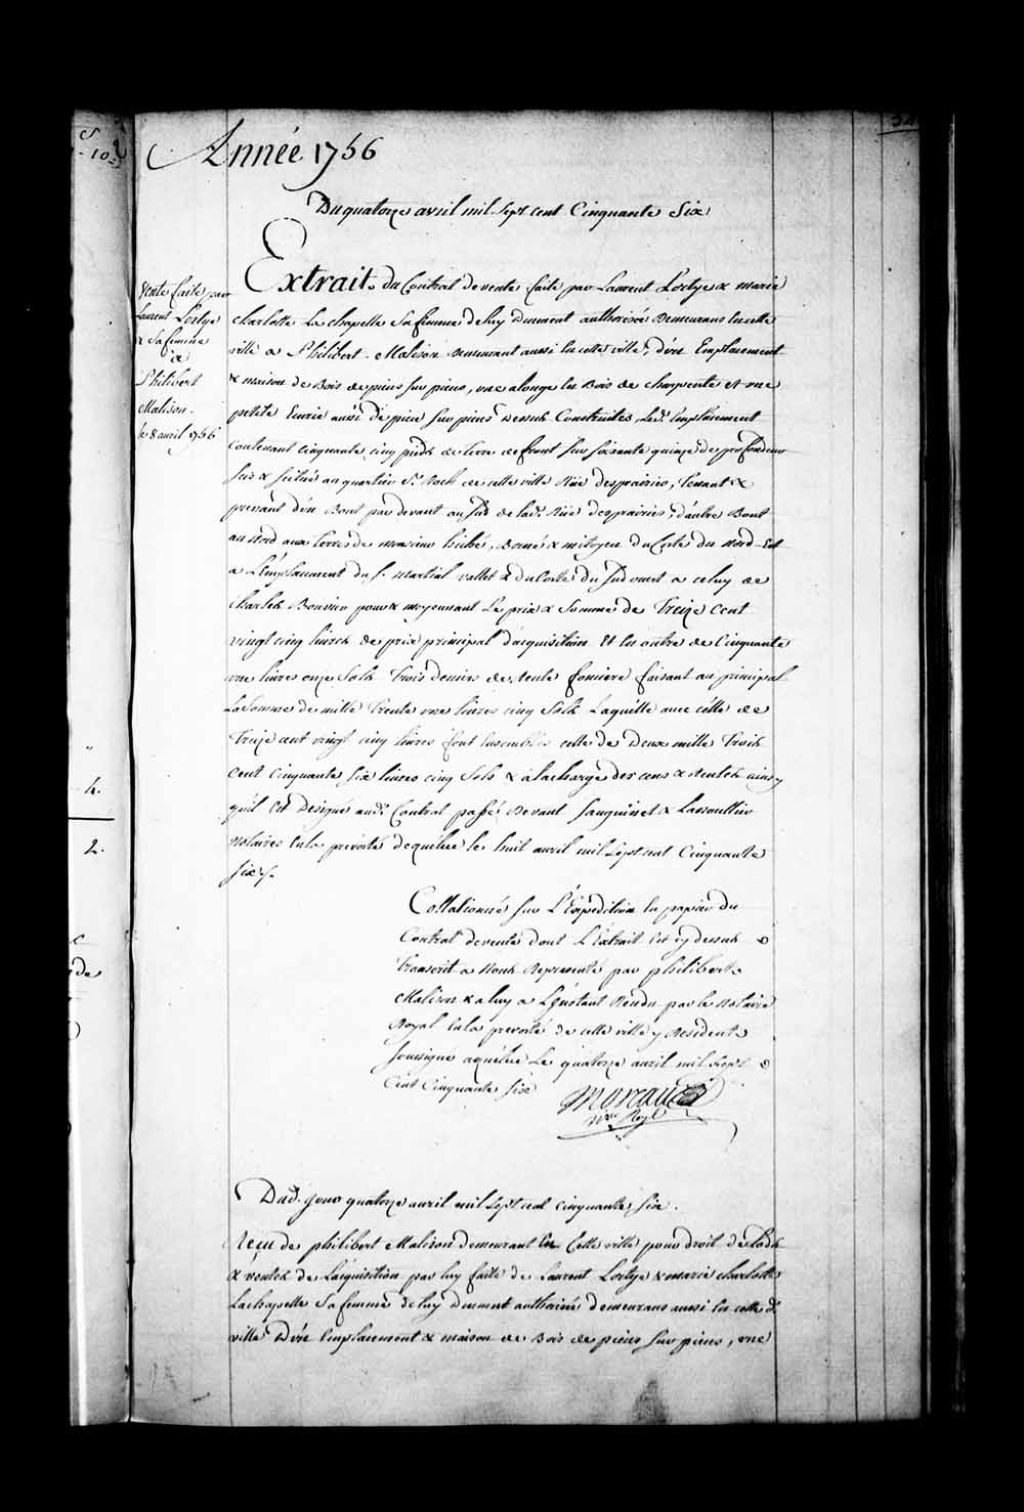 Année 1756
Du quatorze avril mil sept cent Cinquante Six
Vente faite par
Laurent Lortye
& Sa femme
a
Philibert
Malison.
le 8 avril 1756
Extrait du Contrat de vente faite par Laurent Lortye & marie
charlotte La chapelle Sa femme de luy dument authorisée Demeurans en cette
ville a Philibert Malison demeurant aussi en cette ville, d'un Emplacement
& maison de Bois de pieus sur pieus, une alonge en Bois de charpente et une
petite Ecurie aussi de pieus sur pieus dessus Construites, led. Emplacement
contenant cinquante cinq pieds de terre de front sur soixante quinze de profondeur
sis & situé au quartier St. Roch de cette ville Rüe des prairies, tenant &
prenant d'un Bout par devant au sud de lad. Rüe des prairies, d'autre Bout
au Nord aux terres de monsieur hiché, Borné & mitoyen du Coste du nord-Est
a L'Emplacement du S. martial vallet & du Coste du Sud ouest a celuy de
charles Bouvier pour & moyennant Le prix & Somme de Treize Cent
vingt cinq livres de prix principal d'acquisition Et en outre de Cinquante
une livres onze Sols Trois deniers de Rente fonciere faisant au principal
La Somme de mille Trente une livres cinq Sols Laquelle avec celle de
Treize cent vingt cinq livres font Ensemble celle de Deux mille Trois
Cent Cinquante six livres cinq Sols & a la charge des cens & Rentes ainsy
qu'il Est Designé aud. Contrat passé Devant Sanguinet & Lanoullier
Notaires En la prevosté de quebec le huit avril mil Sept cent Cinquante
six /.
Collationné sur L'Expedition en papier du
Contrat de vente dont L'Extrait Est cy dessus
Transcrit a Nous Representé par philibert
Malison & a luy a L'instant Rendu par le Notaire
Royal En la prevosté de cette ville y Resident
soussigné a quebec Le quatorze avril mil sept
Cent Cinquante six
Moreau
Nre Royl
Dud. jour quatorze avril mil sept cent cinquante six.
Reçu de philibert Malison demeurant En Cette ville pour droit de Lods
& ventes de L'aquisition par luy faite de Laurent Lortye & marie charlotte
Lachapelle Sa femme de luy Dument authorisée demeurans aussi En cette d.
ville D'un Emplacement & maison de Bois de pieus sur pieus, une